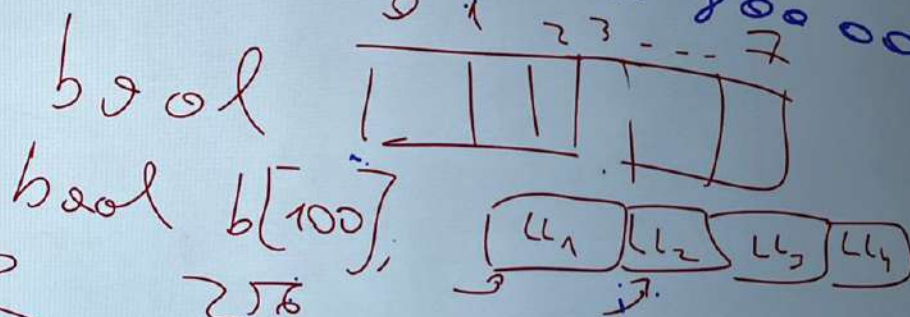 0 1 2 3 - - - 7 800 00
bool
bool b[100];
LL1 LL2 LL3 LL4
256